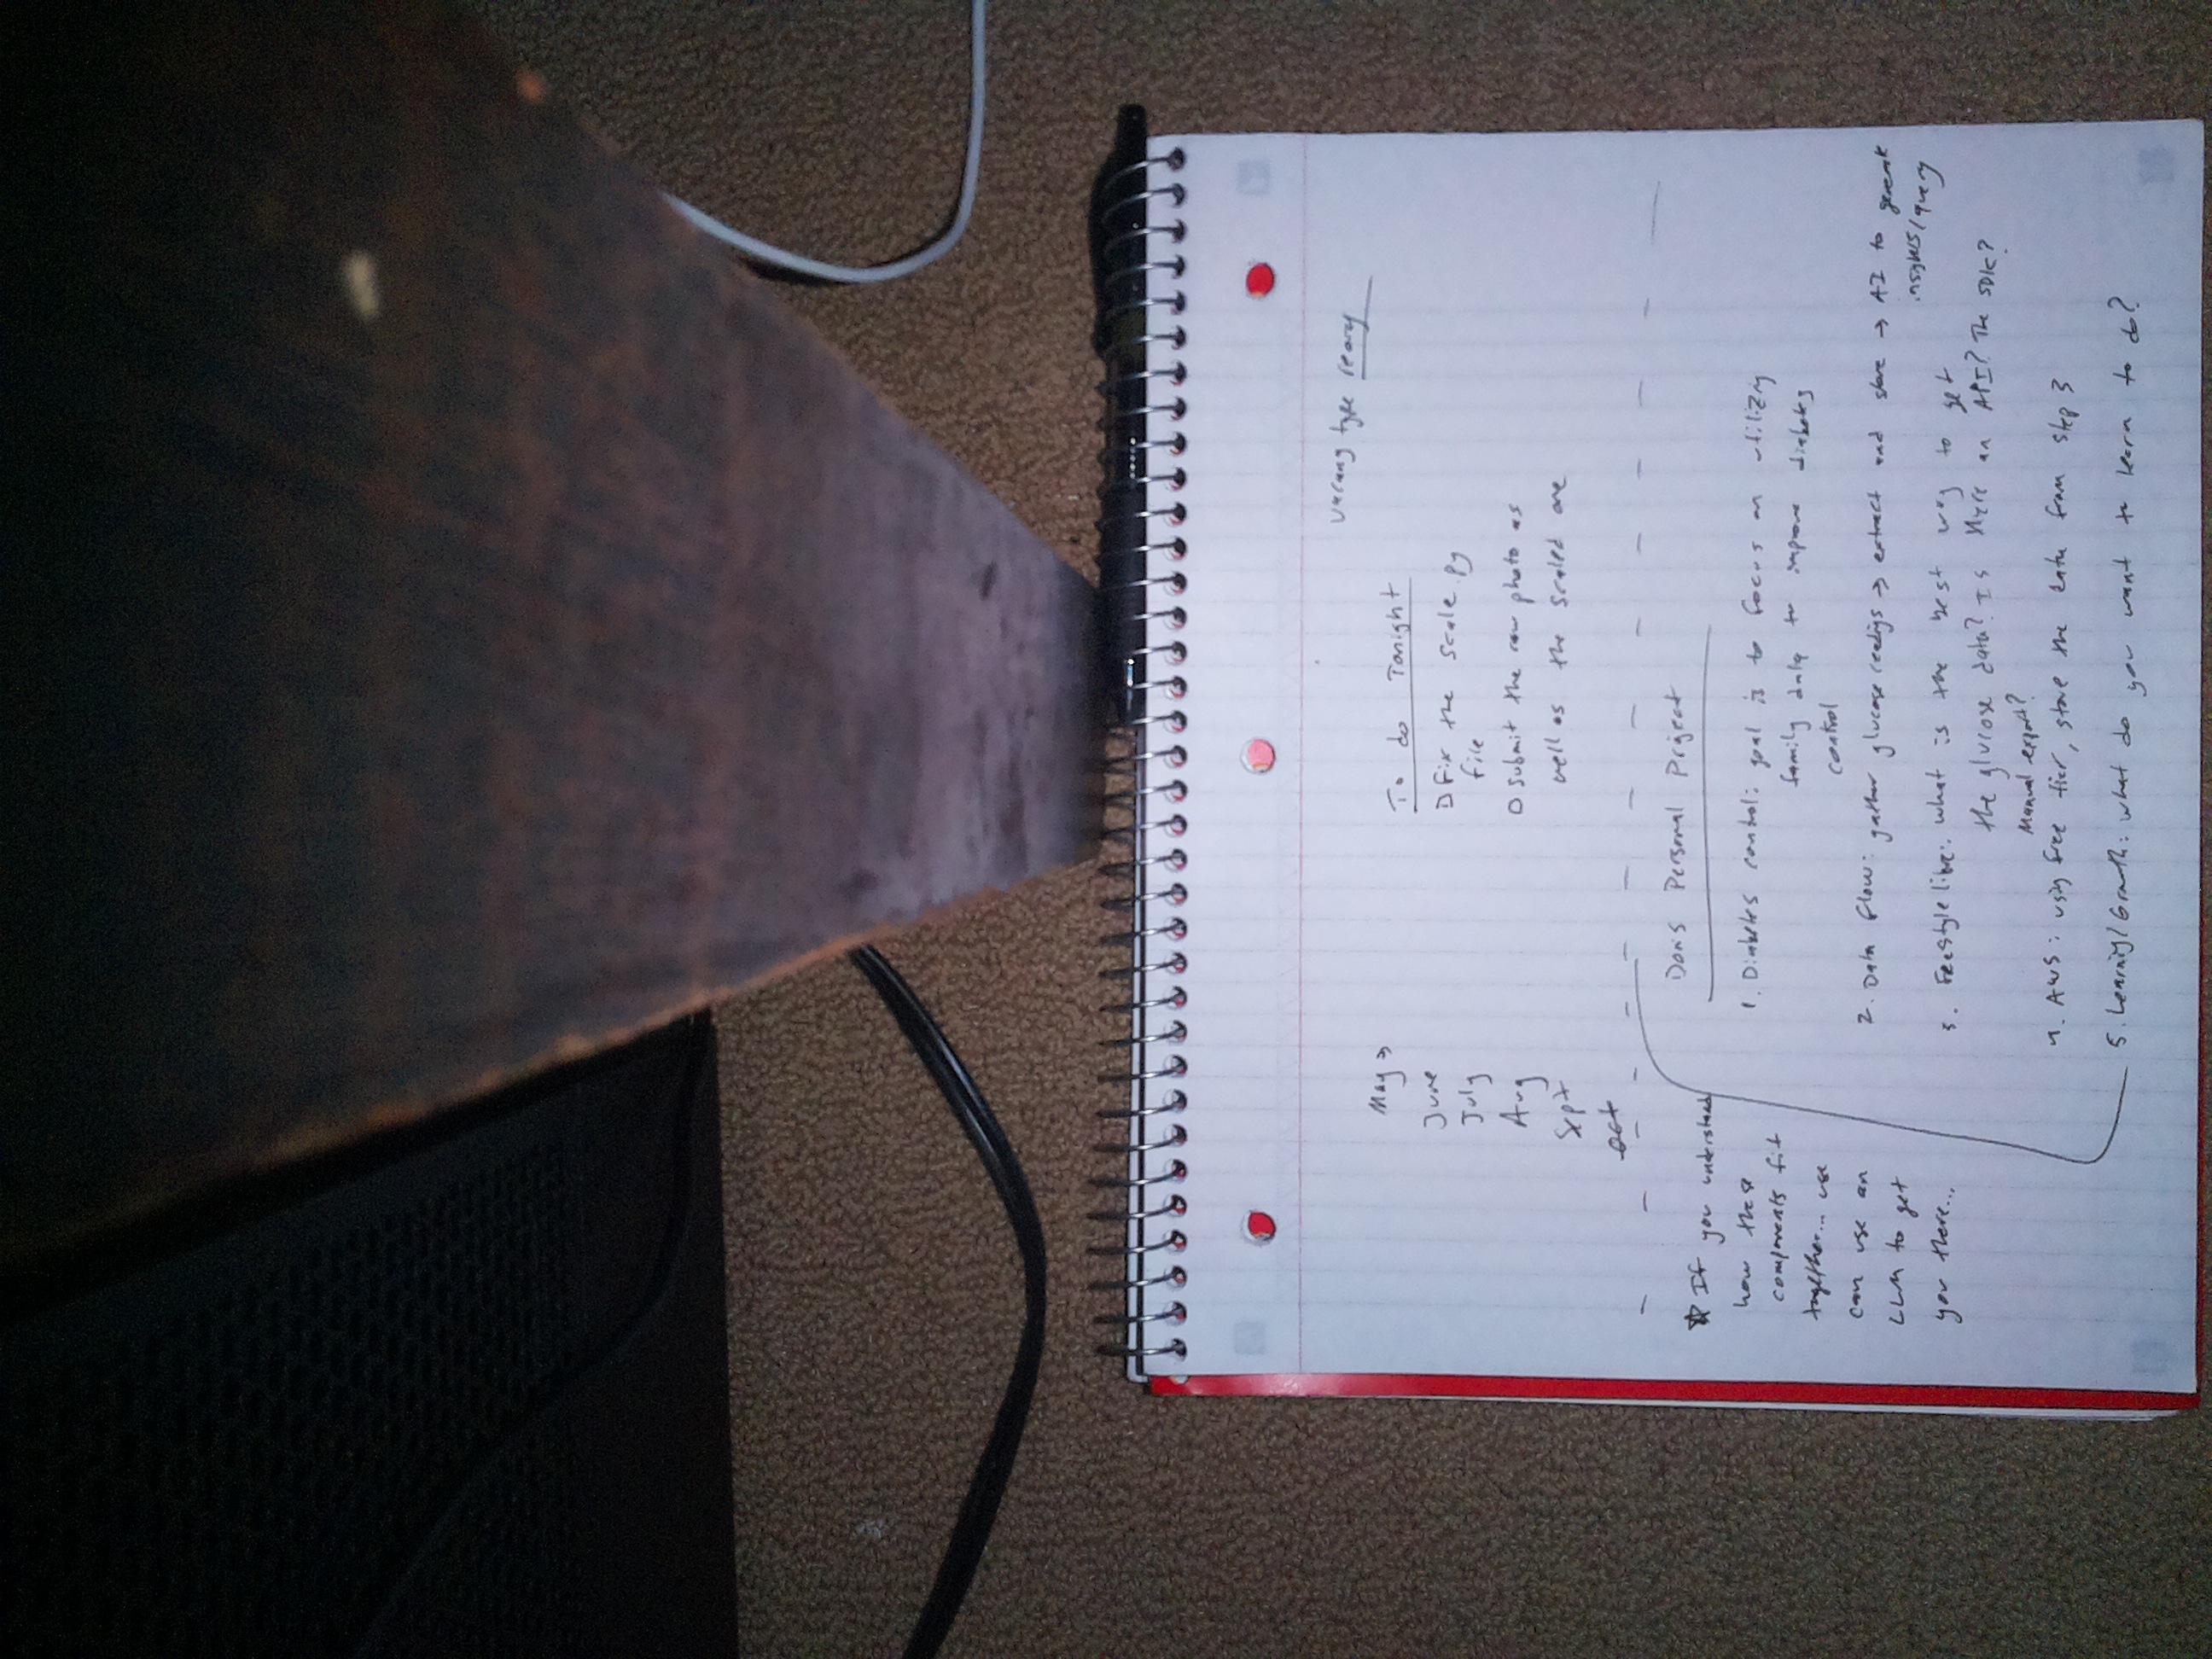 May →
June
July
Aug
Sept
Oct
type
To do Tonight
Fix the scale.py
file
Submit the raw photo as
well as the scaled one
Don's Personal Project
1. Diabetes control: goal is to focus on utilizing
family data to improve diabetes
control
2. Data flow: gather glucose readings → extract and store → AI to generate
insights/query
3. Freestyle libre: what is the best way to get
the glucose data? Is there an API? The SDK?
Manual export?
4. AWS: using free tier, store the data from step 3
5. Learning/Growth: what do you want to learn to do?
If you understand
how these
components fit
together... we
can use an
LLM to get
you there...